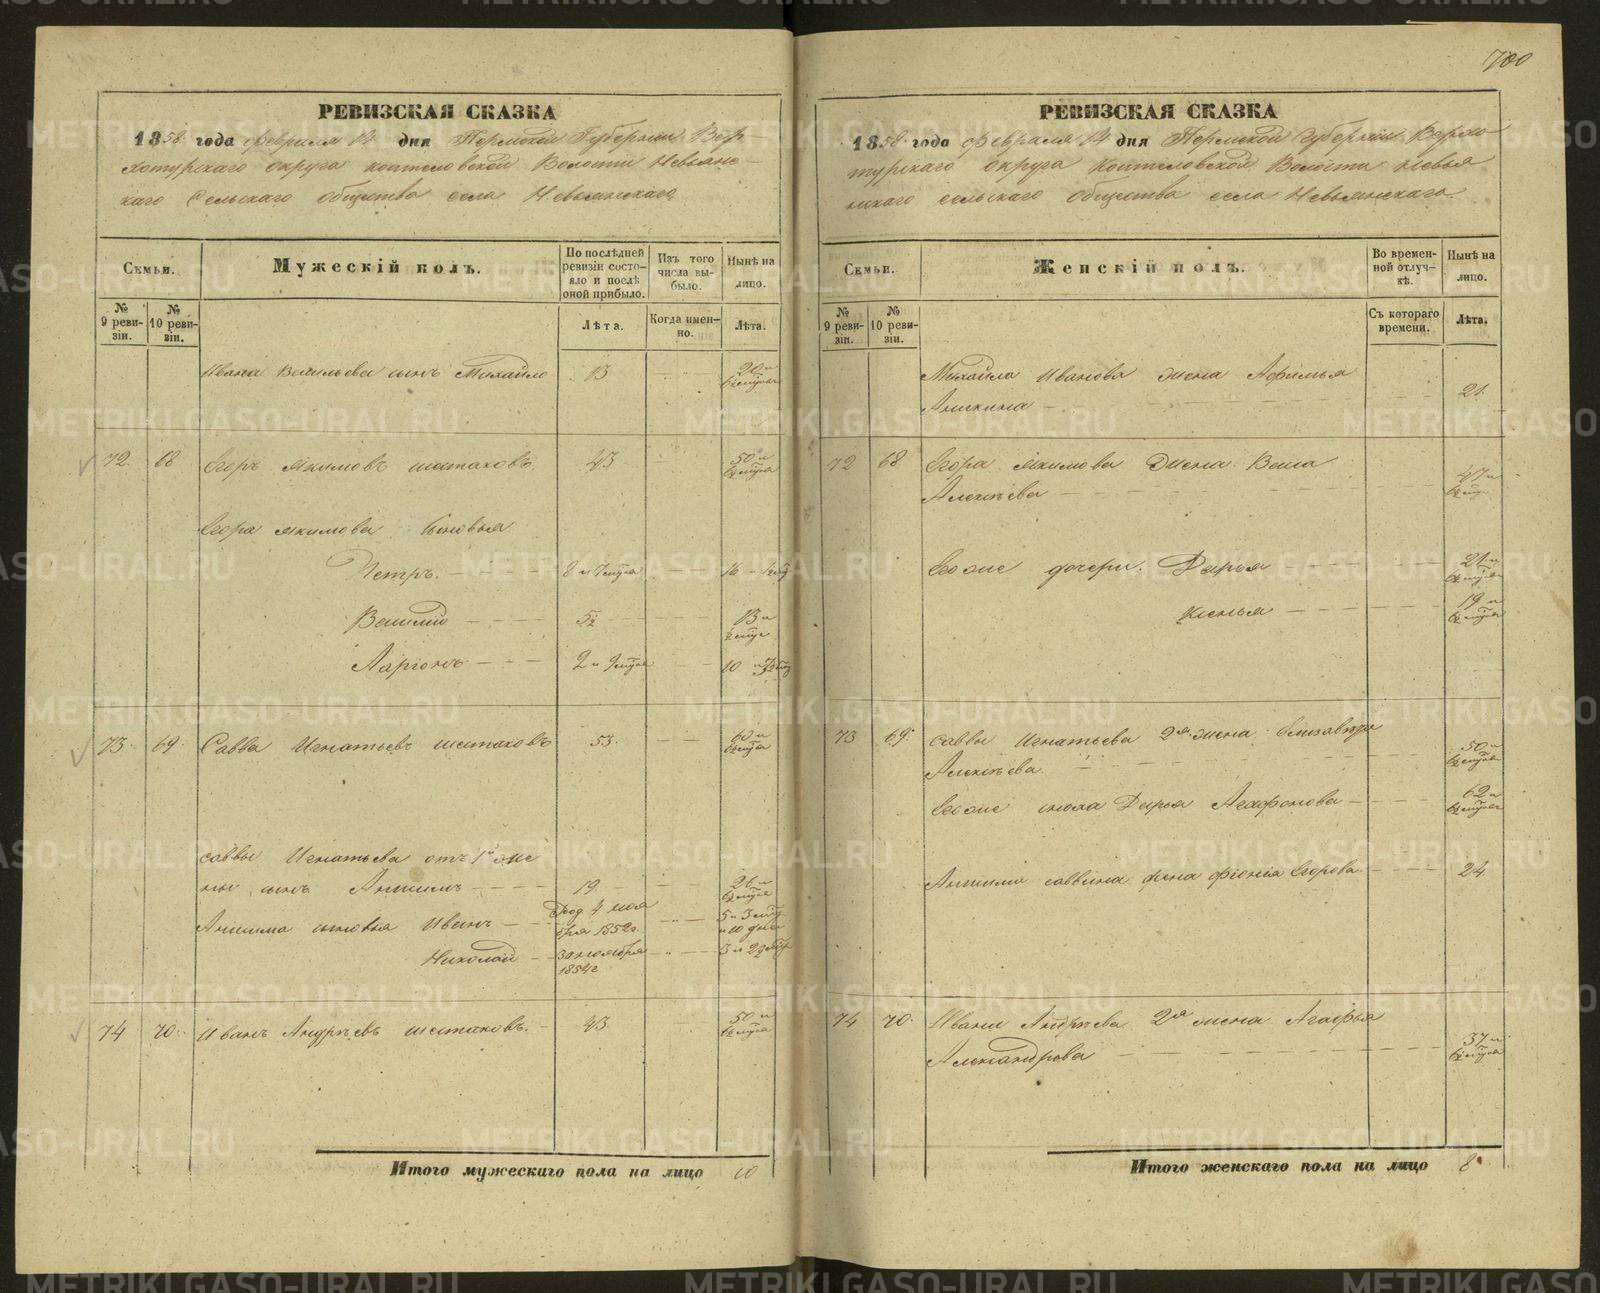 700
РЕВИЗСКАЯ СКАЗКА
1858 года февраля 14 дня Пермской Губернии Верхотурскаго округа коптеловской Волости Невьянскаго Сельскаго общества села Невьянскаго
Семьи.
Мужескій полъ.
По послѣдней ревизіи состояло и послѣ оной прибыло.
Изъ того числа выбыло.
Нынѣ на лицо.
№ 9 ревизіи.
№ 10 ревизіи.
Лѣта.
Когда именно.
Лѣта.
Ивана Васильева сынъ Михайло 13
72. 68 Егоръ Якимовъ шестаковъ. 43 50 и
Егора Якимова сыновья
Петръ. 8 и 7 16
Василій 5½ 13 и
Ларіонъ 2 и 9 10
73. 69. Савва Игнатьевъ шестаковъ 53. 60 и
саввы Игнатьева отъ 1й же
ны сынъ Анисимъ 19
Анисима сыновья Иванъ Род. 4 ноя
бря 1852г. 5 и 3
и 10 дней
Николай 30 ноября
1854г
74 70. Иванъ Андрѣевъ шестаковъ. 43. 50 и
Итого мужескаго пола на лицо 10
РЕВИЗСКАЯ СКАЗКА
1858 года февраля 14 дня Пермской Губерніи Верхо
турскаго округа Коптеловской Волости Невья
нскаго сельскаго общества села Невьянскаго
Семьи.
Женскій полъ.
Во временной отлучкѣ.
Нынѣ на лицо.
№ 9 ревизіи.
№ 10 ревизіи.
Съ котораго времени.
Лѣта.
Михайла Иванова жена Афимья
Аникина 21.
72 68 Егора якимова Жена Васса
Алексѣева 47 и
Егоже дочери. Дарья 21 и
Ксенья 19 и
73 69. саввы Игнатьева 2я жена Елизавѣта
Алексѣева. 50 и
Егоже сноха Дарья Агафонова 62 и
Анисима саввина жена Фіонія Егорова 24
74 70. Ивана Андрѣева 2я жена Агафья
Александрова 37 и
Итого женскаго пола на лицо 8.
METRIKI.GASO-URAL.RU